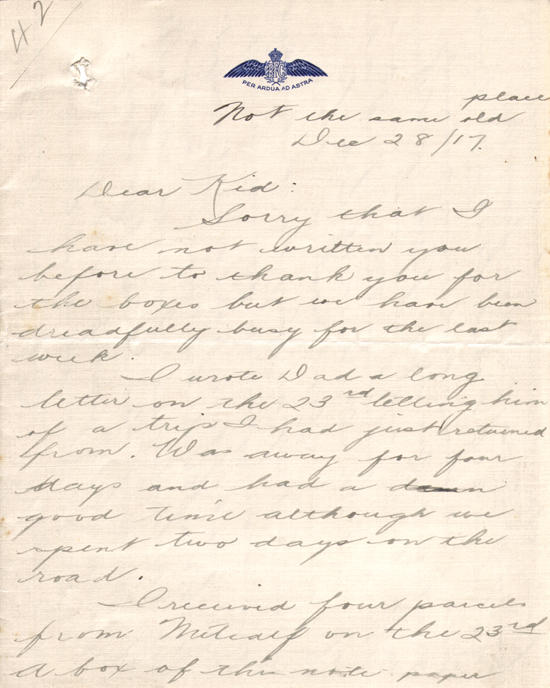 42
RFC
PER ARDUA AD ASTRA
place
Not the same old
Dec 28/17.
Dear Kid:
Sorry that I
have not written you
before to thank you for
the boxes but we have been
dreadfully busy for the last
week.
I wrote Dad a long
letter on the 23rd telling him
of a trip I had just returned
from. Was away for four
days and had a damn
good time although we
spent two days on the
road.
I received four parcels
from Metcalf on the 23rd
A box of this note paper